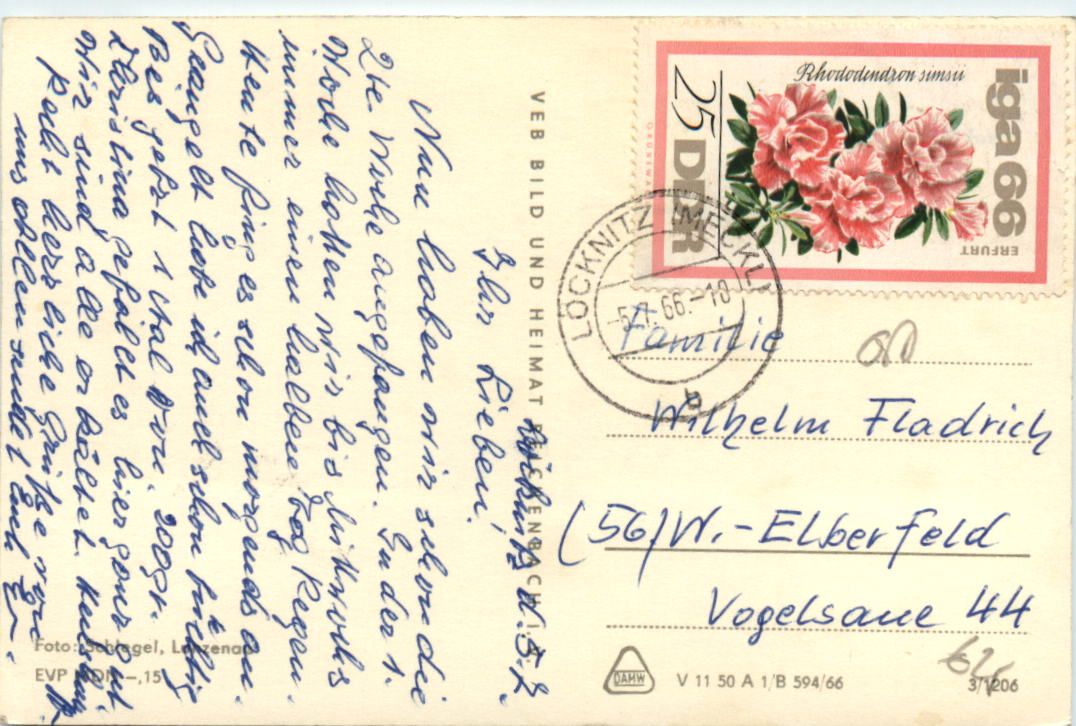 Löcknitz d. 5.7.
Ihr Lieben!
Nun haben wir schon die
2te Woche angefangen. In der 1.
Woche hatten wir bis Mittwochs
immer einen halben Tag Regen.
Heute fing es schon morgends an.
Geangelt habe ich auch schon tüchtig
Bis jetzt 1 Aal von 200gr.
Christina gefällt es hier ganz gut
Wir sind alle erkältet.
Recht herrliche Grüße von
uns Allen sendet Euch
VEB BILD UND HEIMAT REICHENBACH I. V.
Foto: Schlegel, Lunzenau
EVP MDN -,15
Rhododendron simsii
25 DDR
iga 66
ERFURT
GRÜNEWALD
LÖCKNITZ (MECKL)
-5.7.66.-10
a
Familie
Wilhelm Fladrich
(56) W.-Elberfeld
Vogelsaue 44
DAMW
V 11 50 A 1/B 594/66
3/1206